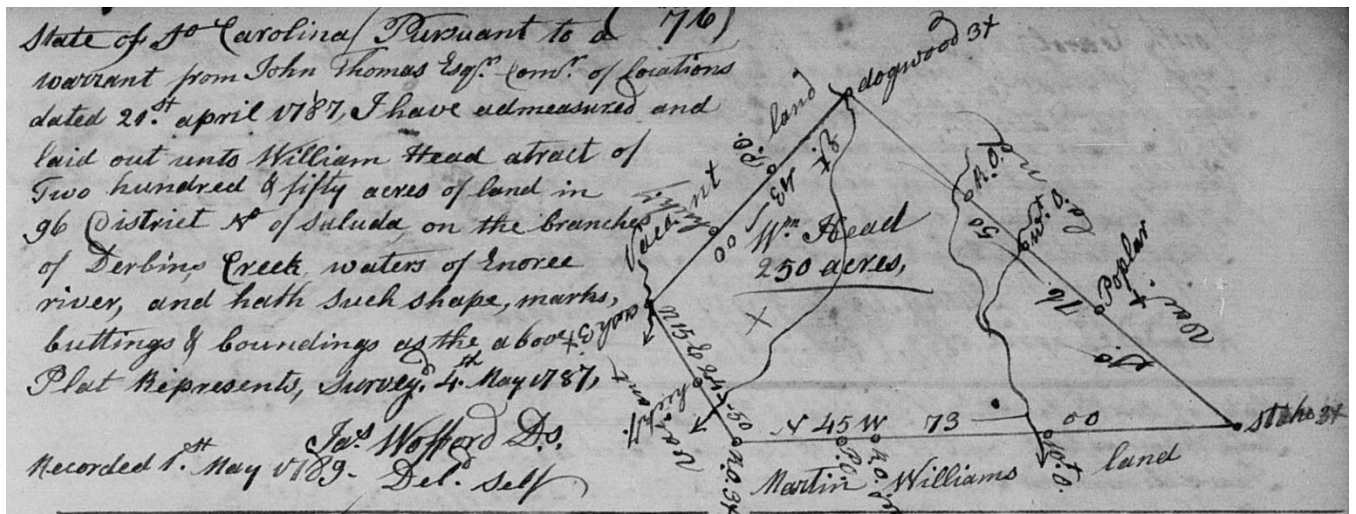 State of So Carolina ( Pursuant to a ( 76 )
warrant from John Thomas Esqr. Comr. of Locations
dated 21st. april 1787, I have admeasured and
laid out unto William Head a tract of
Two hundred & fifty acres of land in
96 District No of Saluda, on the branches
of Derbins Creek waters of Enoree
river, and hath such shape, marks,
buttings & boundings as the above
Plat Represents, Surveyed. 4th. May 1787,
Jas Wofford Ds.
Recorded 1st. May 1789. Deld. Self
dogwood 3x
Vacant land
P.O.
Wm Head
250 acres,
R.O.
50
W.O.
Poplar
76
Vacant
ash 3x
Vacant
R.O. 3x
N 45 W 73
P.O.
R.O.
W.O.
Stake 3x
Martin Williams land